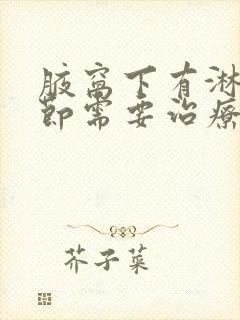 腋窝下有淋
节需要治疗
芥子菜